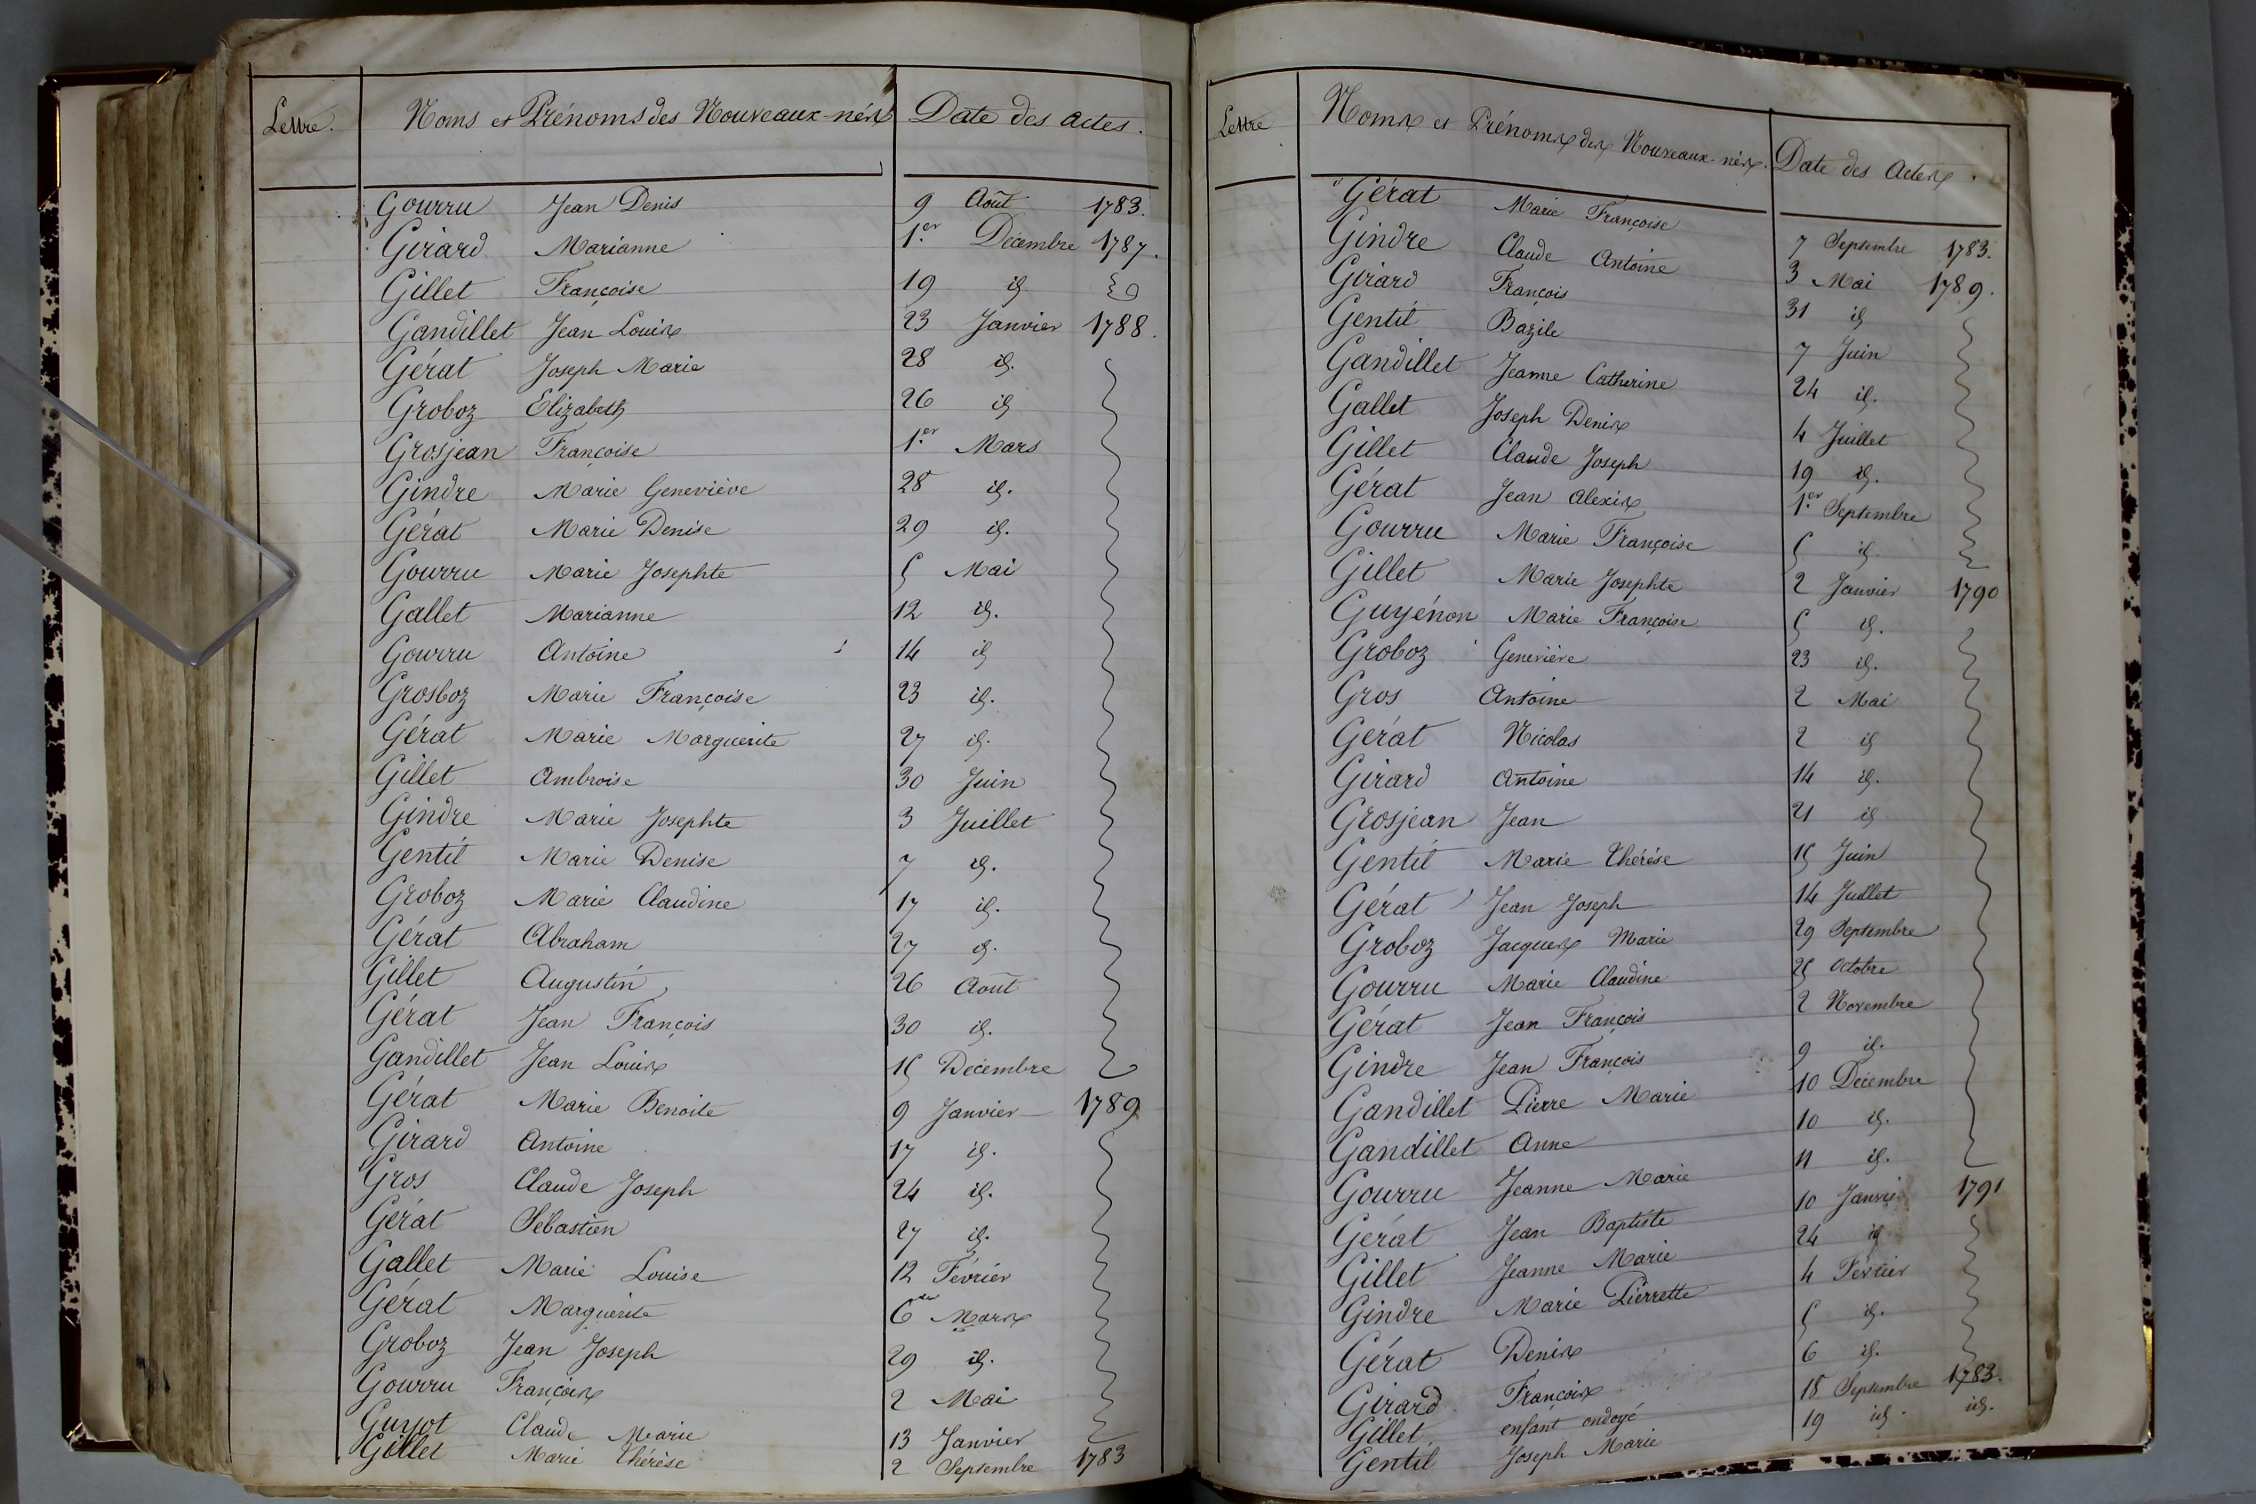 Lettre. Noms et Prénoms des Nouveaux-nés Date des Actes.
Gourru Jean Denis 9 Août 1783.
Girard Marianne 1.er Décembre 1787.
Gillet Françoise 19 id
Gandillet Jean Louis 23 Janvier 1788.
Gérat Joseph Marie 28 id.
Groboz Elizabeth 26 id
Grosjean Françoise 1.er Mars
Gindre Marie Geneviève 28 id.
Gérat Marie Denise 29 id.
Gourru Marie Josephte 5 Mai
Gallet Marianne 12 id.
Gourru Antoine 14 id
Grosboz Marie Françoise 23 id.
Gérat Marie Marguerite 27 id.
Gillet Ambroise 30 Juin
Gindre Marie Josephte 3 Juillet
Gentil Marie Denise 7 id.
Groboz Marie Claudine 17 id.
Gérat Abraham 27 id.
Gillet Augustin 26 Août
Gérat Jean François 30 id.
Gandillet Jean Louis 15 Décembre
Gérat Marie Benoite 9 Janvier 1789
Girard Antoine 17 id.
Gros Claude Joseph 24 id.
Gérat Sebastien 27 id.
Gallet Marie Louise 12 Février
Gérat Marguerite 6 Mars
Groboz Jean Joseph 29 id.
Gourru François 2 Mai
Guyot Claude Marie 13 Janvier
Gillet Marie Thérèse 2 Septembre 1783
Lettre Noms et Prénoms des Nouveaux-nés. Date des Actes.
Gérat Marie Françoise 7 Septembre 1783.
Gindre Claude Antoine 3 Mai 1789.
Girard François 31 id
Gentil Bazile 7 Juin
Gandillet Jeanne Catherine 24 id.
Gallet Joseph Denis 4 Juillet
Gillet Claude Joseph 19 id.
Gérat Jean Alexis 1.er Septembre
Gourru Marie Françoise 5 id.
Gillet Marie Josephte 2 Janvier 1790
Guyénon Marie Françoise 5 id.
Groboz Geneviève 23 id.
Gros Antoine 2 Mai
Gérat Nicolas 2 id
Girard Antoine 14 id.
Grosjean Jean 21 id
Gentil Marie Thérèse 15 Juin
Gérat Jean Joseph 14 Juillet
Groboz Jacques Marie 29 Septembre
Gourru Marie Claudine 25 Octobre
Gérat Jean François 2 Novembre
Gindre Jean François 9 id.
Gandillet Pierre Marie 10 Décembre
Gandillet Anne 10 id.
Gourru Jeanne Marie 11 id.
Gérat Jean Baptiste 10 Janvier 1791
Gillet Jeanne Marie 24 id
Gindre Marie Pierrette 4 Février
Gérat Denis 5 id.
Girard François 6 id.
Gillet enfant ondoyé 18 Septembre 1783.
Gentil Joseph Marie 19 id. id.